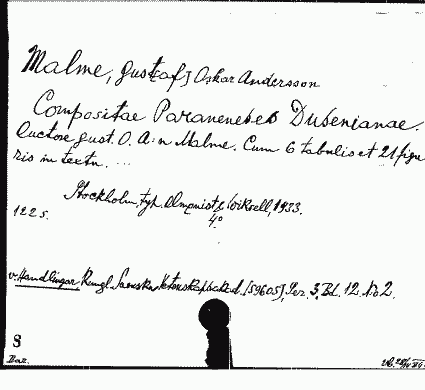 Malme, Gust[af] Oskar Andersson
Compositae Paranenses Dusenianae.
Auctore Gust. O. A:n Malme. Cum 6 tabulis et 21 figu-
ris in textu. ...
Stockholm, typ. Almqvist & Wiksell, 1933.
122 s. 4°
v. Handlingar, Kungl. Svenska Vetenskapsakad. [59605], Ser. 3, Bd. 12. No 2.
8
Baz.